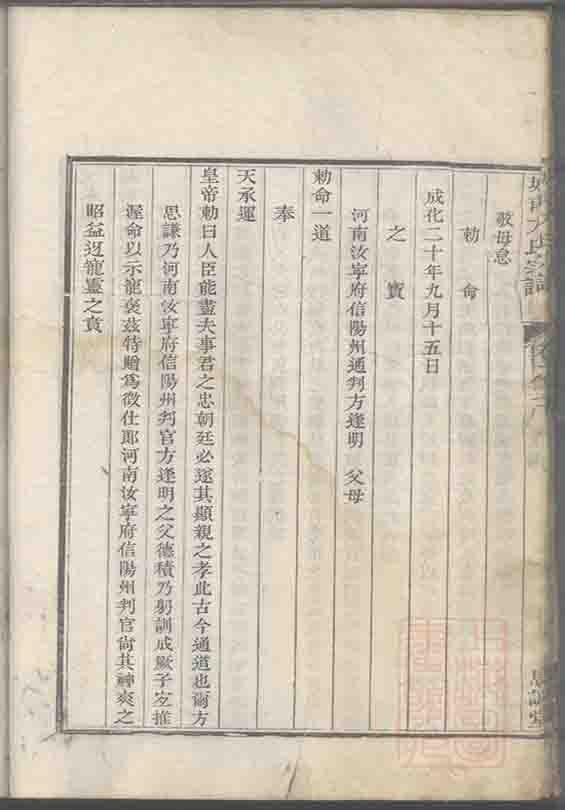 敬毋怠
勅命
成化二十年九月十五日
之寳
河南汝寧府信陽州通判方逢明 父母
勅命一道
奉
天承運
皇帝勅曰人臣能盡夫事君之忠朝廷必遂其顯親之孝此古今通道也爾方
思謙乃河南汝寧府信陽州判官方逢明之父德積乃躬訓成厥子宜推
渥命以示寵褒兹特贈爲徵仕郎河南汝寧府信陽州判官尚其神爽之
昭益迓寵靈之賁